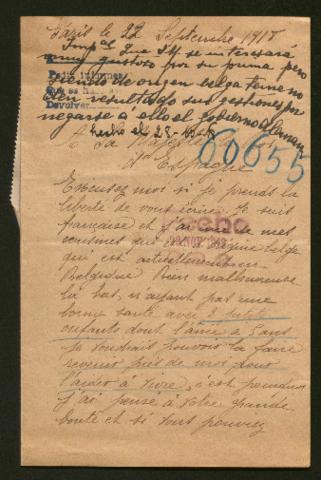 Paris le 22 Septembre 1917
que S.M. se interesará
muy gustoso por su prima pero
siendo de origen belga teme no
den resultado sus gestiones por
negarse a ello el gobierno aleman
Devolver
hecho el 28-
60655
A Sa Majesté
d'Espagne
Excusez moi si je prends la
liberté de vous écrire, je suis
française et j'ai une de mes
cousines qui origine belge
qui est actuellement en
Belgique bien malheureuse
là bas, n'ayant pas une
bonne santé avec 2 petits
enfants dont l'ainé a 5 ans
je voudrais pouvoir la faire
revenir près de moi pour
l'aider à vivre, c'est pourquoi
j'ai pensé à votre grande
bonté et si vous pouviez